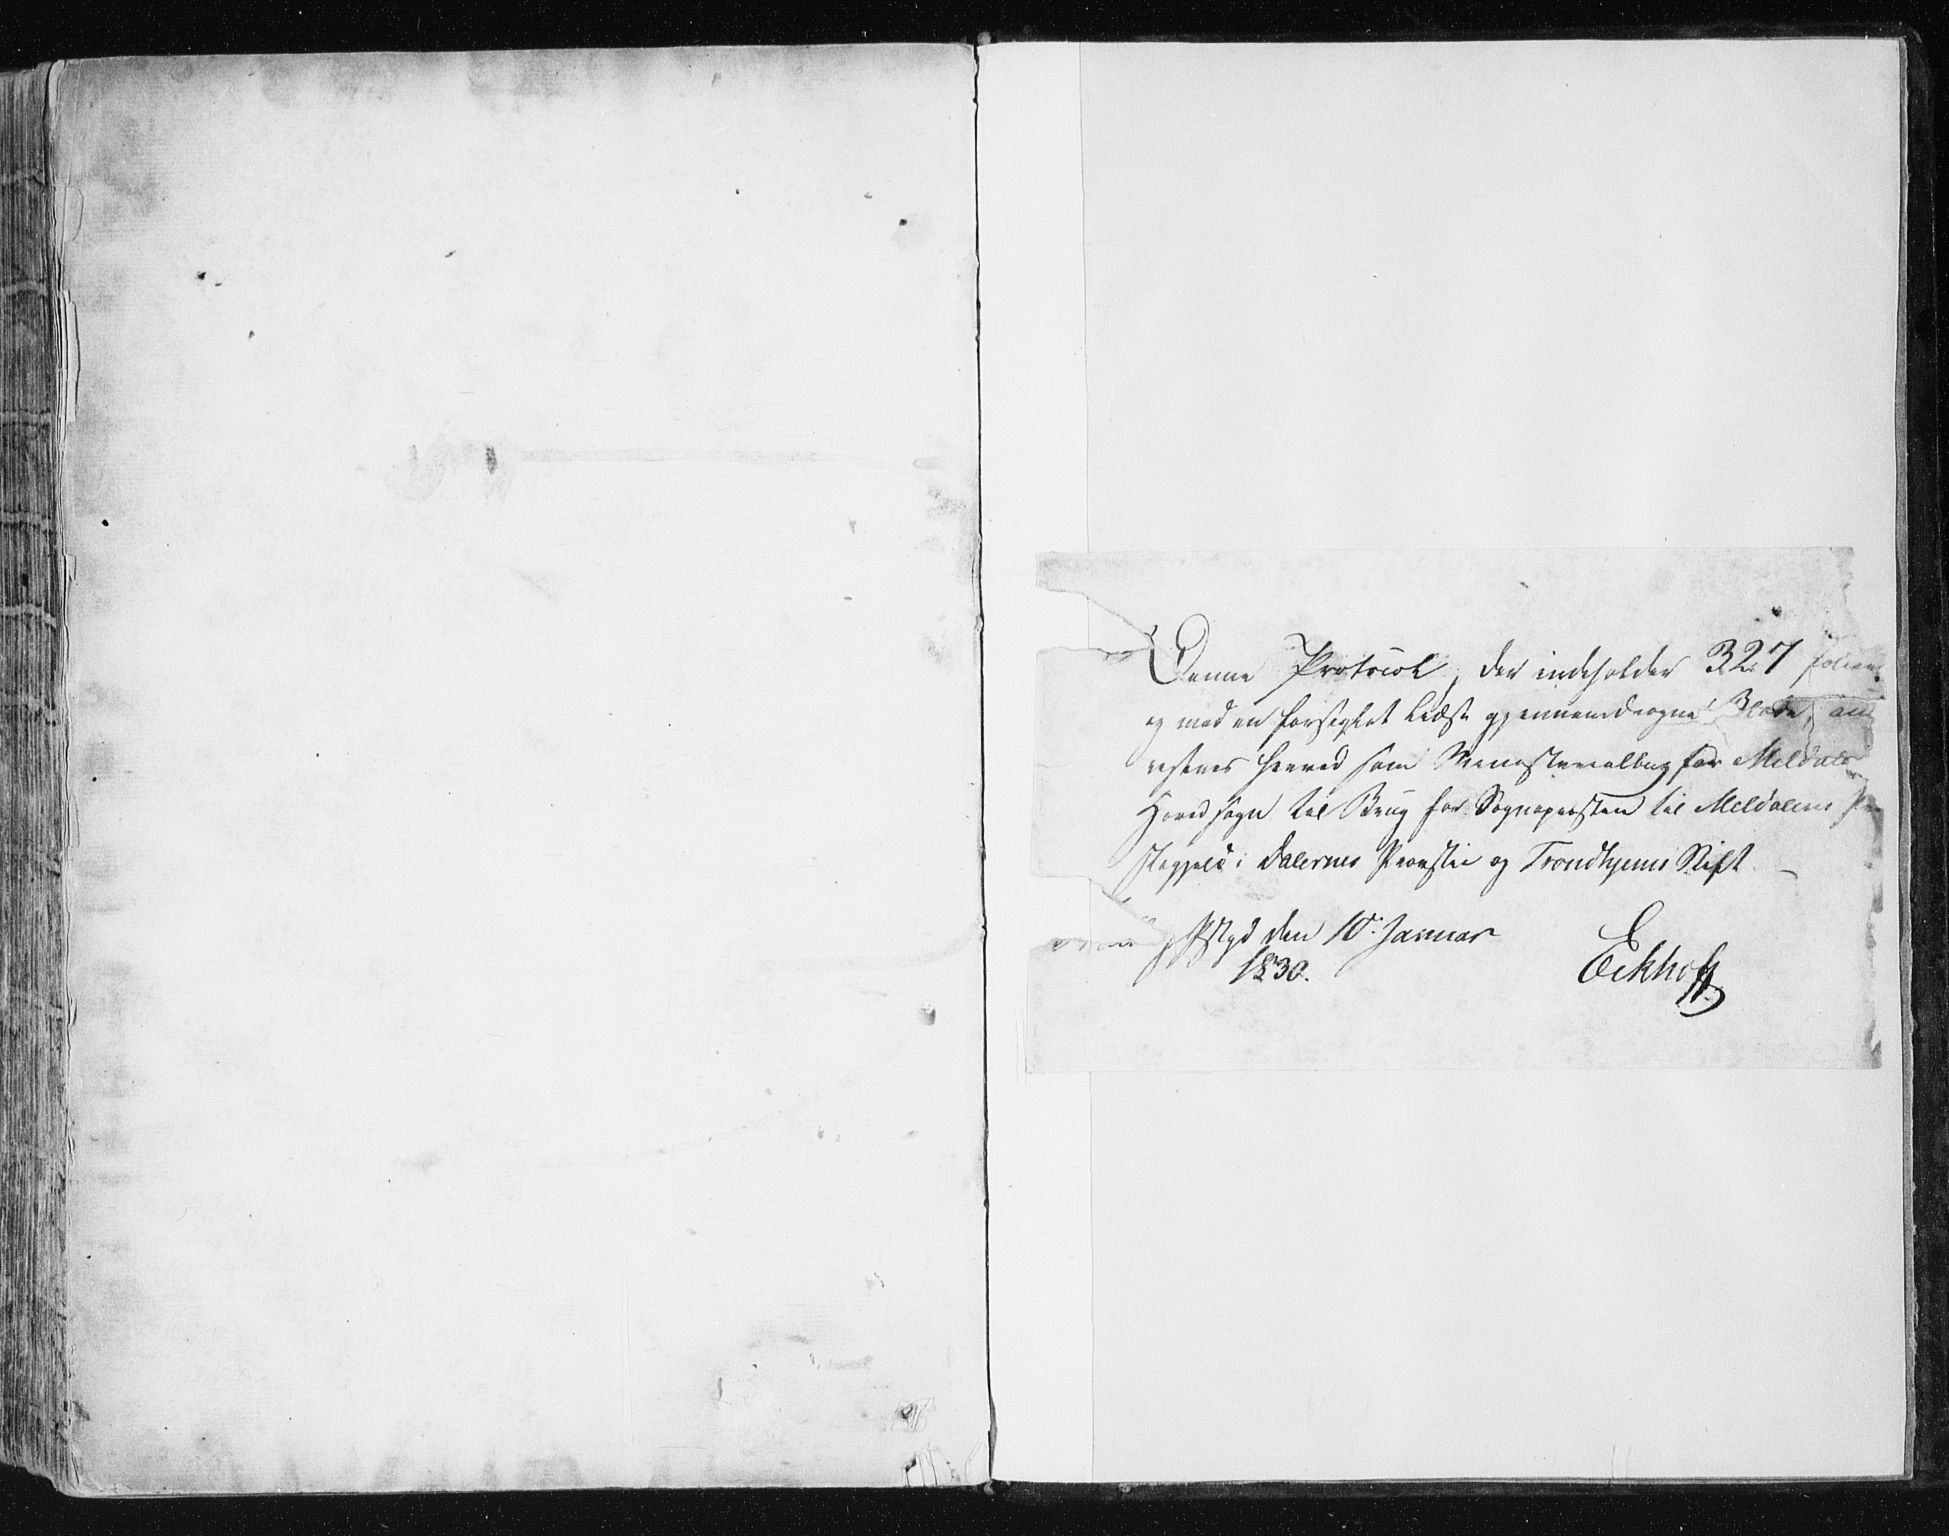 Denne Protocol, der indeholder 327 folierede
og med en forseglet Lidse gjennemdragne Blade, au
toriseres herved som Ministerialbog for Meldals
Hovedsogn til Brug for Sognepresten til Meldalens Præ
stegjeld i Dalernes Provstie og Trondhjems Stift. –
den 10. Januar
1830.
Eckhoff